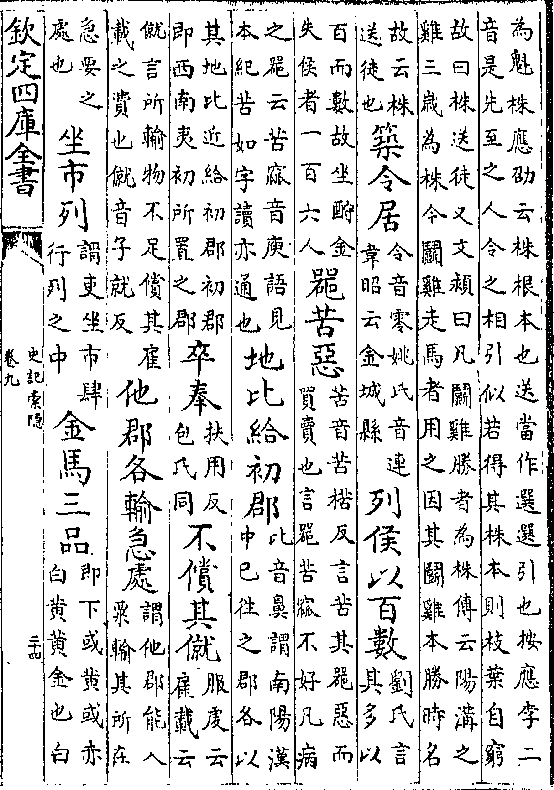 為魁株應劭云株根本也送當作選選引也按應李二
音是先至之人令之相引似若得其株本則枝葉自窮
故曰株送徒又文穎曰凡鬬雞勝者為株傳云陽溝之
雞三嵗為株今鬬雞走馬者用之因其鬬雞本勝時名
故云株
送徒也
築令居
令音零姚氏音連
韋昭云金城縣
列侯以百數
劉氏言
其多以
百而數故坐酎金
失侯者一百六人
噐苦惡
苦音苦楛反言苦其噐惡而
買賣也言噐苦窳不好凡病
之噐云苦窳音庾語見
本紀苦如字讀亦通也
地比給初郡
比音鼻謂南陽漢
中已往之郡各以
其地比近給初郡初郡
即西南夷初所置之郡
卒奉
扶用反
包氏同
不償其僦
服虔云
雇載云
僦言所輸物不足償其雇
載之費也僦音子就反
他郡各輸急處
謂他郡能入
粟輸其所在
急要之
處也
坐市列
謂吏坐市肆
行列之中
金馬三品
即下或黄或亦
白黄黄金也白
欽定四庫全書
史記索隱
卷九
二十四